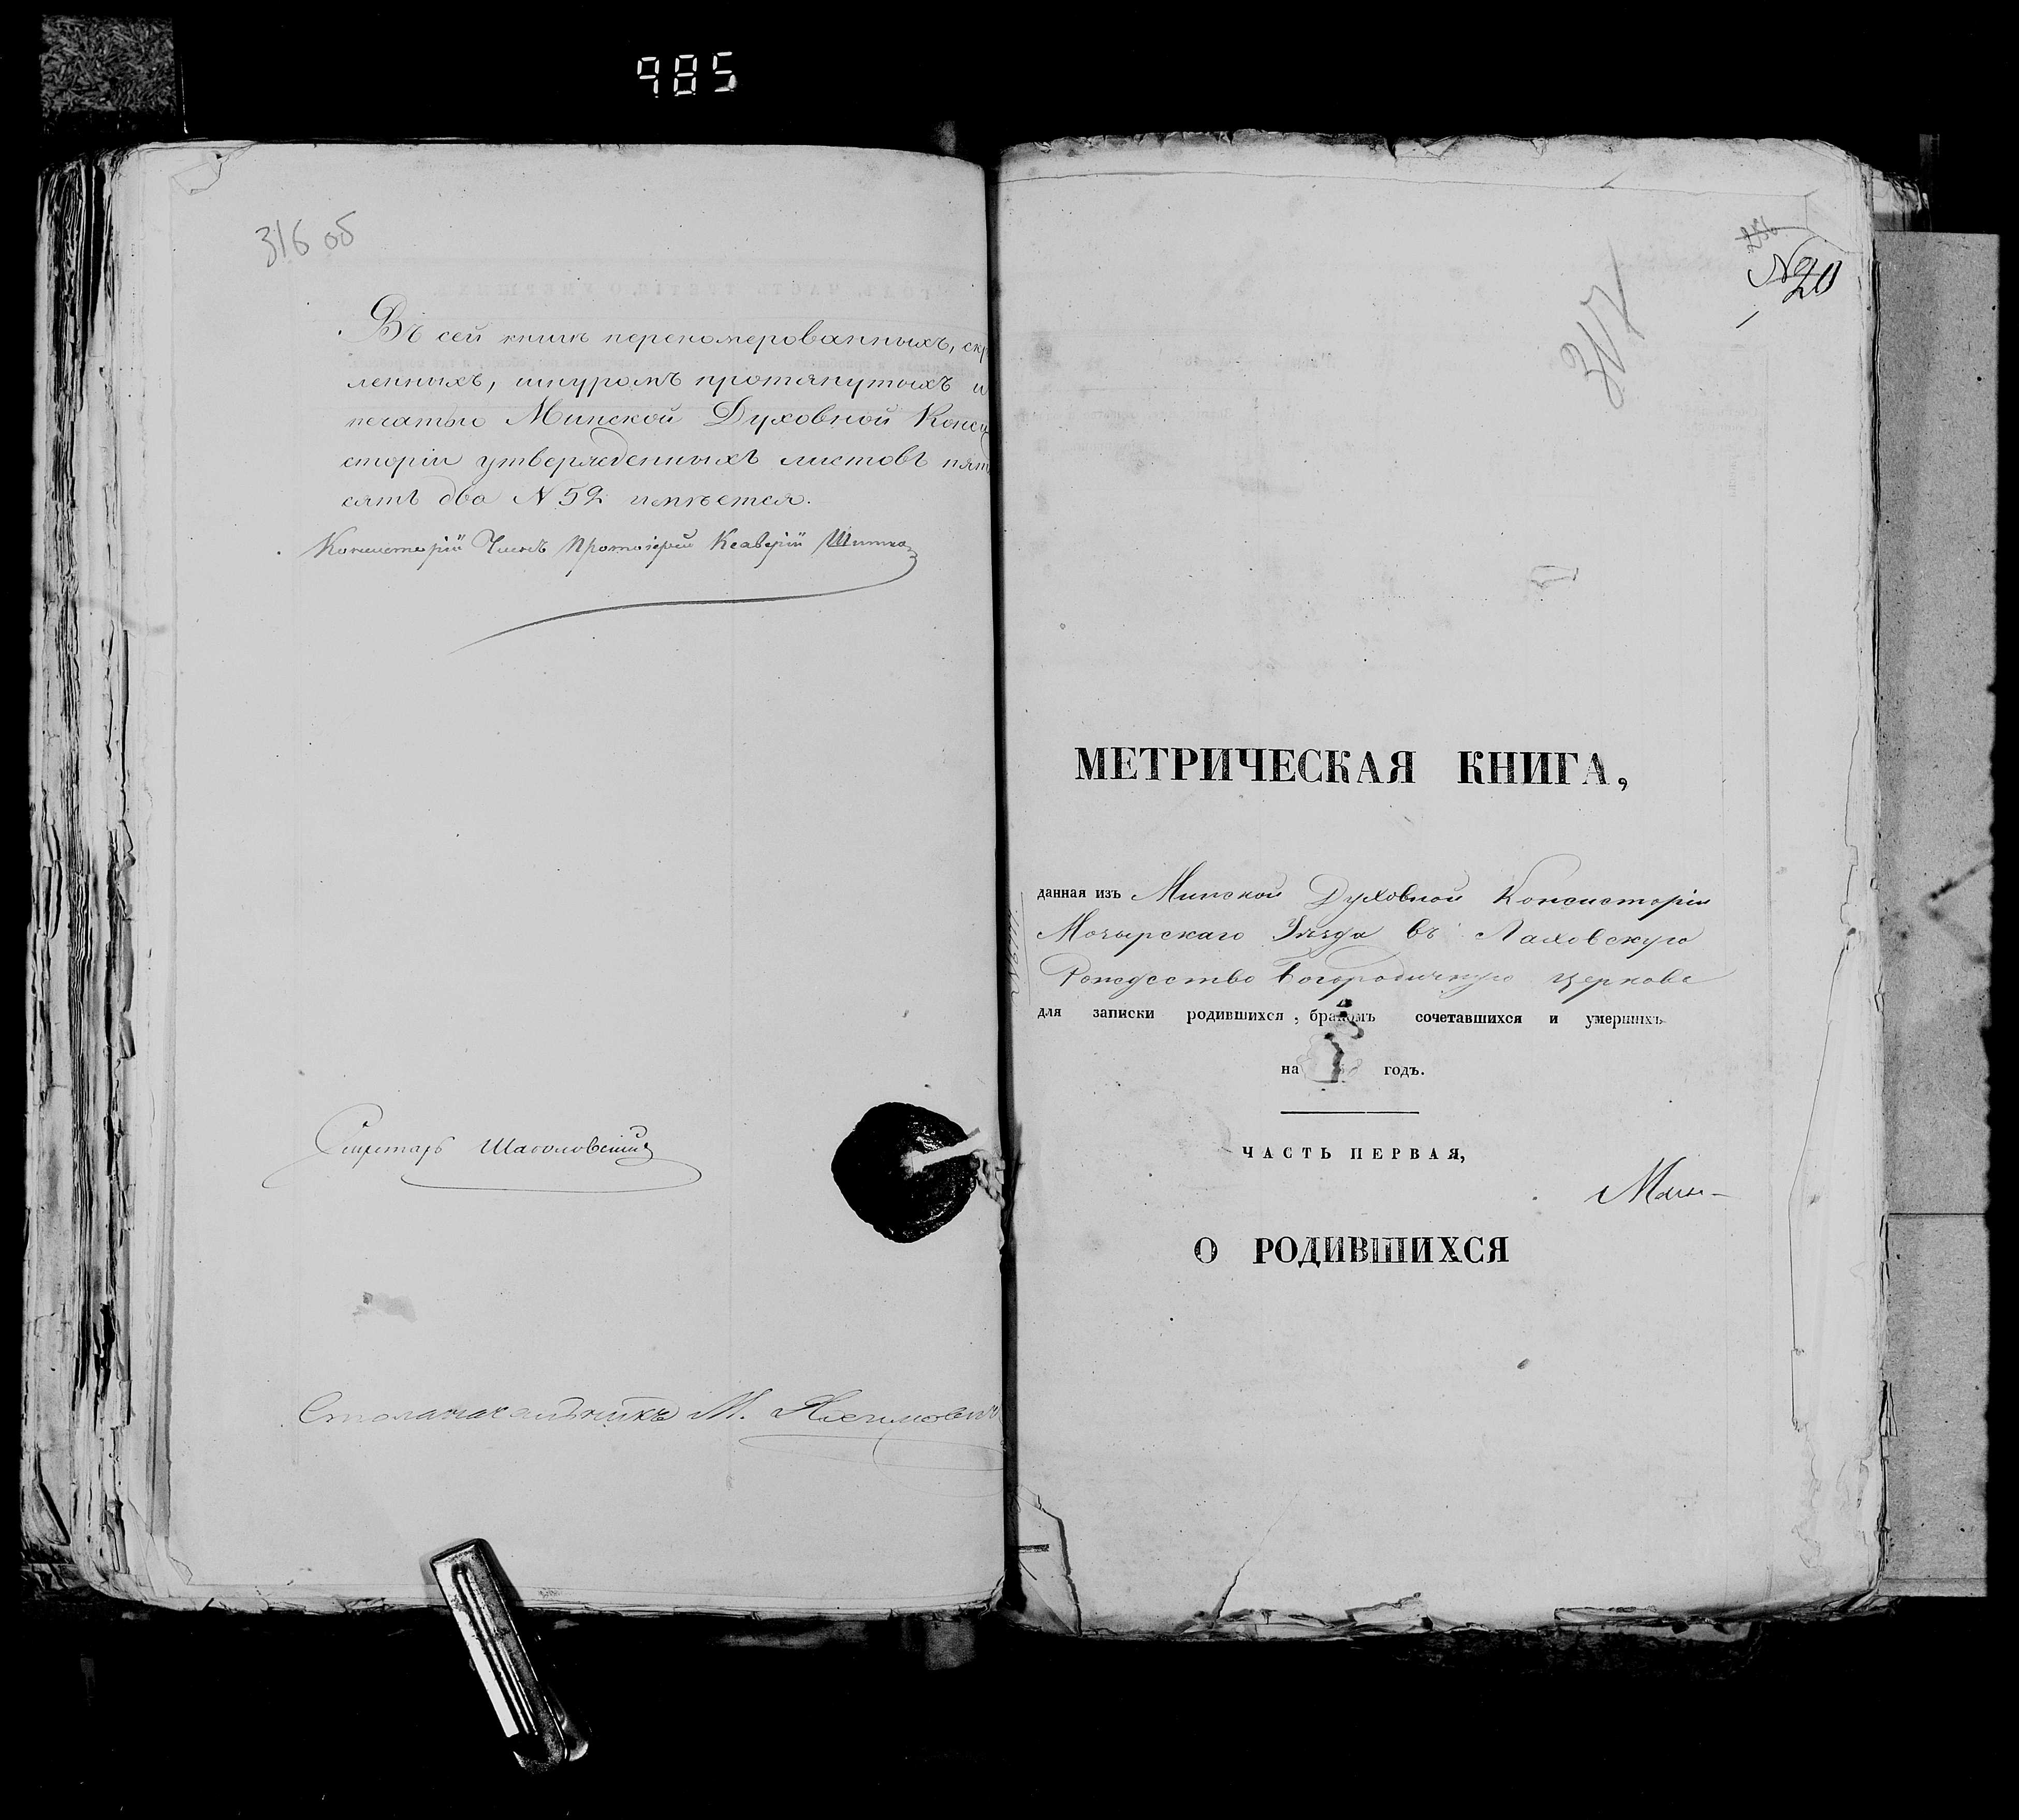 985
316 об
Въ сей книгѣ переномерованныхъ, скр
ленныхъ, шнуромъ протянутыхъ и
печатью Минской Духовной Конси
сторіи утвержденныхъ листовъ пят
сятъ два N 52 имѣется.
Консисторіи Членъ Протоіерей Ксаверій
Секретарь
Столоначальникъ М.
256
N 20
317
МЕТРИЧЕСКАЯ КНИГА,
данная изъ Минской Духовной Консисторіи
Мозырскаго Уѣзда въ Лаховскую
Рождество Богородичную церковь
для записки родившихся, бракомъ сочетавшихся и умершихъ
на годъ.
ЧАСТЬ ПЕРВАЯ,
О РОДИВШИХСЯ